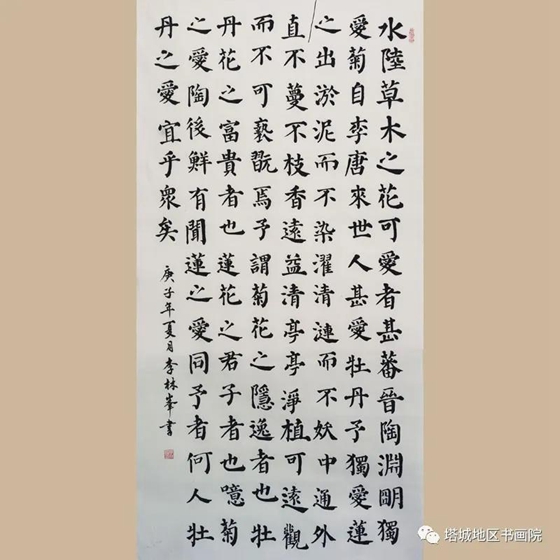 水陸草木之花可愛者甚蕃晉陶淵明獨
愛菊自李唐來世人甚愛牡丹予獨愛蓮
之出淤泥而不染濯清漣而不妖中通外
直不蔓不枝香遠益清亭亭淨植可遠觀
而不可褻翫焉予謂菊花之隱逸者也牡
丹花之富貴者也蓮花之君子者也噫菊
之愛陶後鮮有聞蓮之愛同予者何人牡
丹之愛宜乎眾矣
庚子年夏月李林峯書
塔城地区书画院